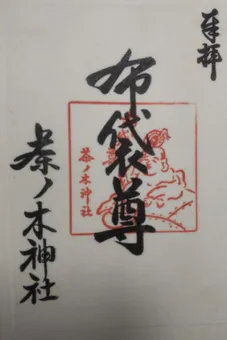 奉拝
布袋尊
茶ノ木神社
茶ノ木神社